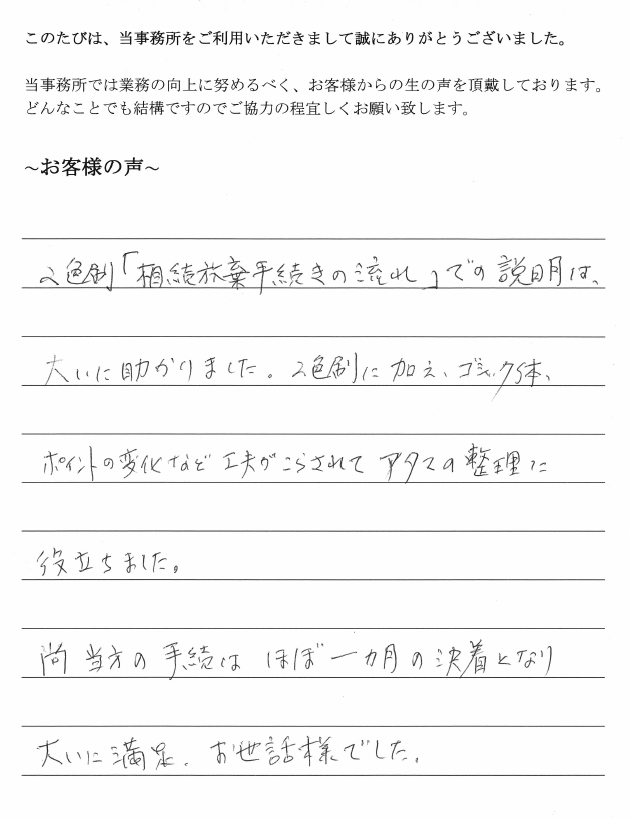 このたびは、当事務所をご利用いただきまして誠にありがとうございました。
当事務所では業務の向上に努めるべく、お客様からの生の声を頂戴しております。
どんなことでも結構ですのでご協力の程宜しくお願い致します。
~お客様の声~
2色刷「相続放棄手続きの流れ」での説明は、
大いに助かりました。2色刷に加え、ゴシック体、
ポイントの変化など工夫がこらされてアタマの整理に
役立ちました。
尚当方の手続は ほぼ一カ月の決着となり
大いに満足。お世話様でした。